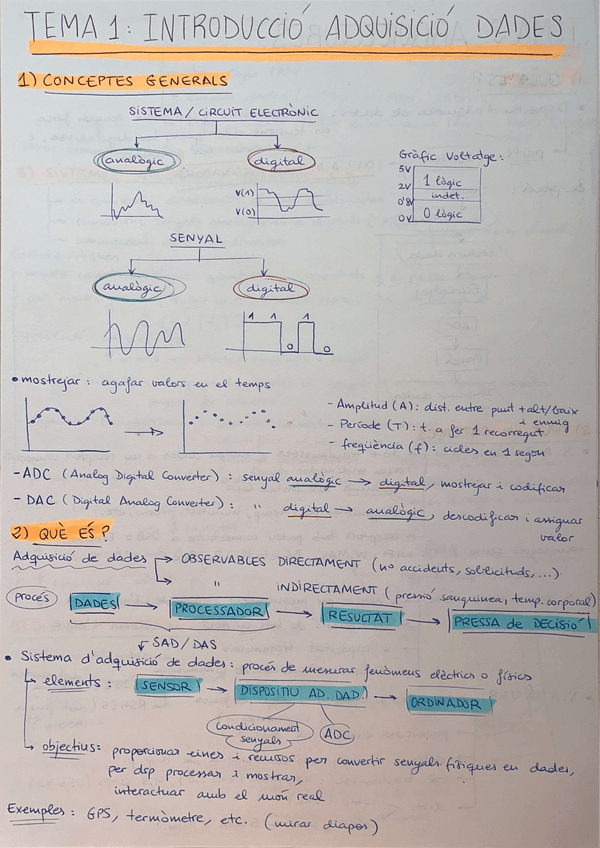 TEMA 1: INTRODUCCIÓ ADQUISICIÓ DADES
1) CONCEPTES GENERALS
SISTEMA / CIRCUIT ELECTRÒNIC
analògic
digital
V(1)
V(0)
Gràfic Voltatge:
5V
2V
0'8V
0V
1 lògic
indet.
0 lògic
SENYAL
analògic
digital
1 1 0 1 0
• mostrejar: agafar valors en el temps
- Amplitud (A): dist. entre punt + alt/baix i enmig
- Període (T): t. a fer 1 recorregut
- freqüència (f): cicles en 1 segon
- ADC (Analog Digital Converter): senyal analògic → digital, mostrejar i codificar
- DAC (Digital Analog Converter): " digital → analògic, descodificar i assignar valor
2) QUÈ ÉS?
Adquisició de dades → OBSERVABLES DIRECTAMENT (nº accidents, sol·licituds,...)
→ " INDIRECTAMENT (pressió sanguinea, temp. corporal)
procés DADES → PROCESSADOR → RESULTAT → PRESSA de DECISIÓ
SAD/DAS
• Sistema d'adquisició de dades: procés de mesurar fenòmens elèctrics o físics
→ elements: SENSOR → DISPOSITIU AD. DAD. → ORDINADOR
Condicionament senyals
ADC
→ objectius: proporcionar eines i recursos per convertir senyals físiques en dades,
per dsp processar i mostrar,
interactuar amb el món real
Exemples: GPS, termòmetre, etc. (mirar diapos)